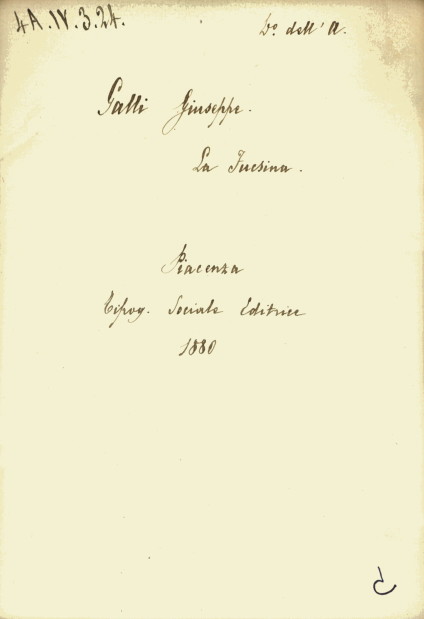 4A.IV.3.24.
D.o dell'A.
Galli Giuseppe.
La Fucsina.
Piacenza
Tipog. Sociale Editrice
1880